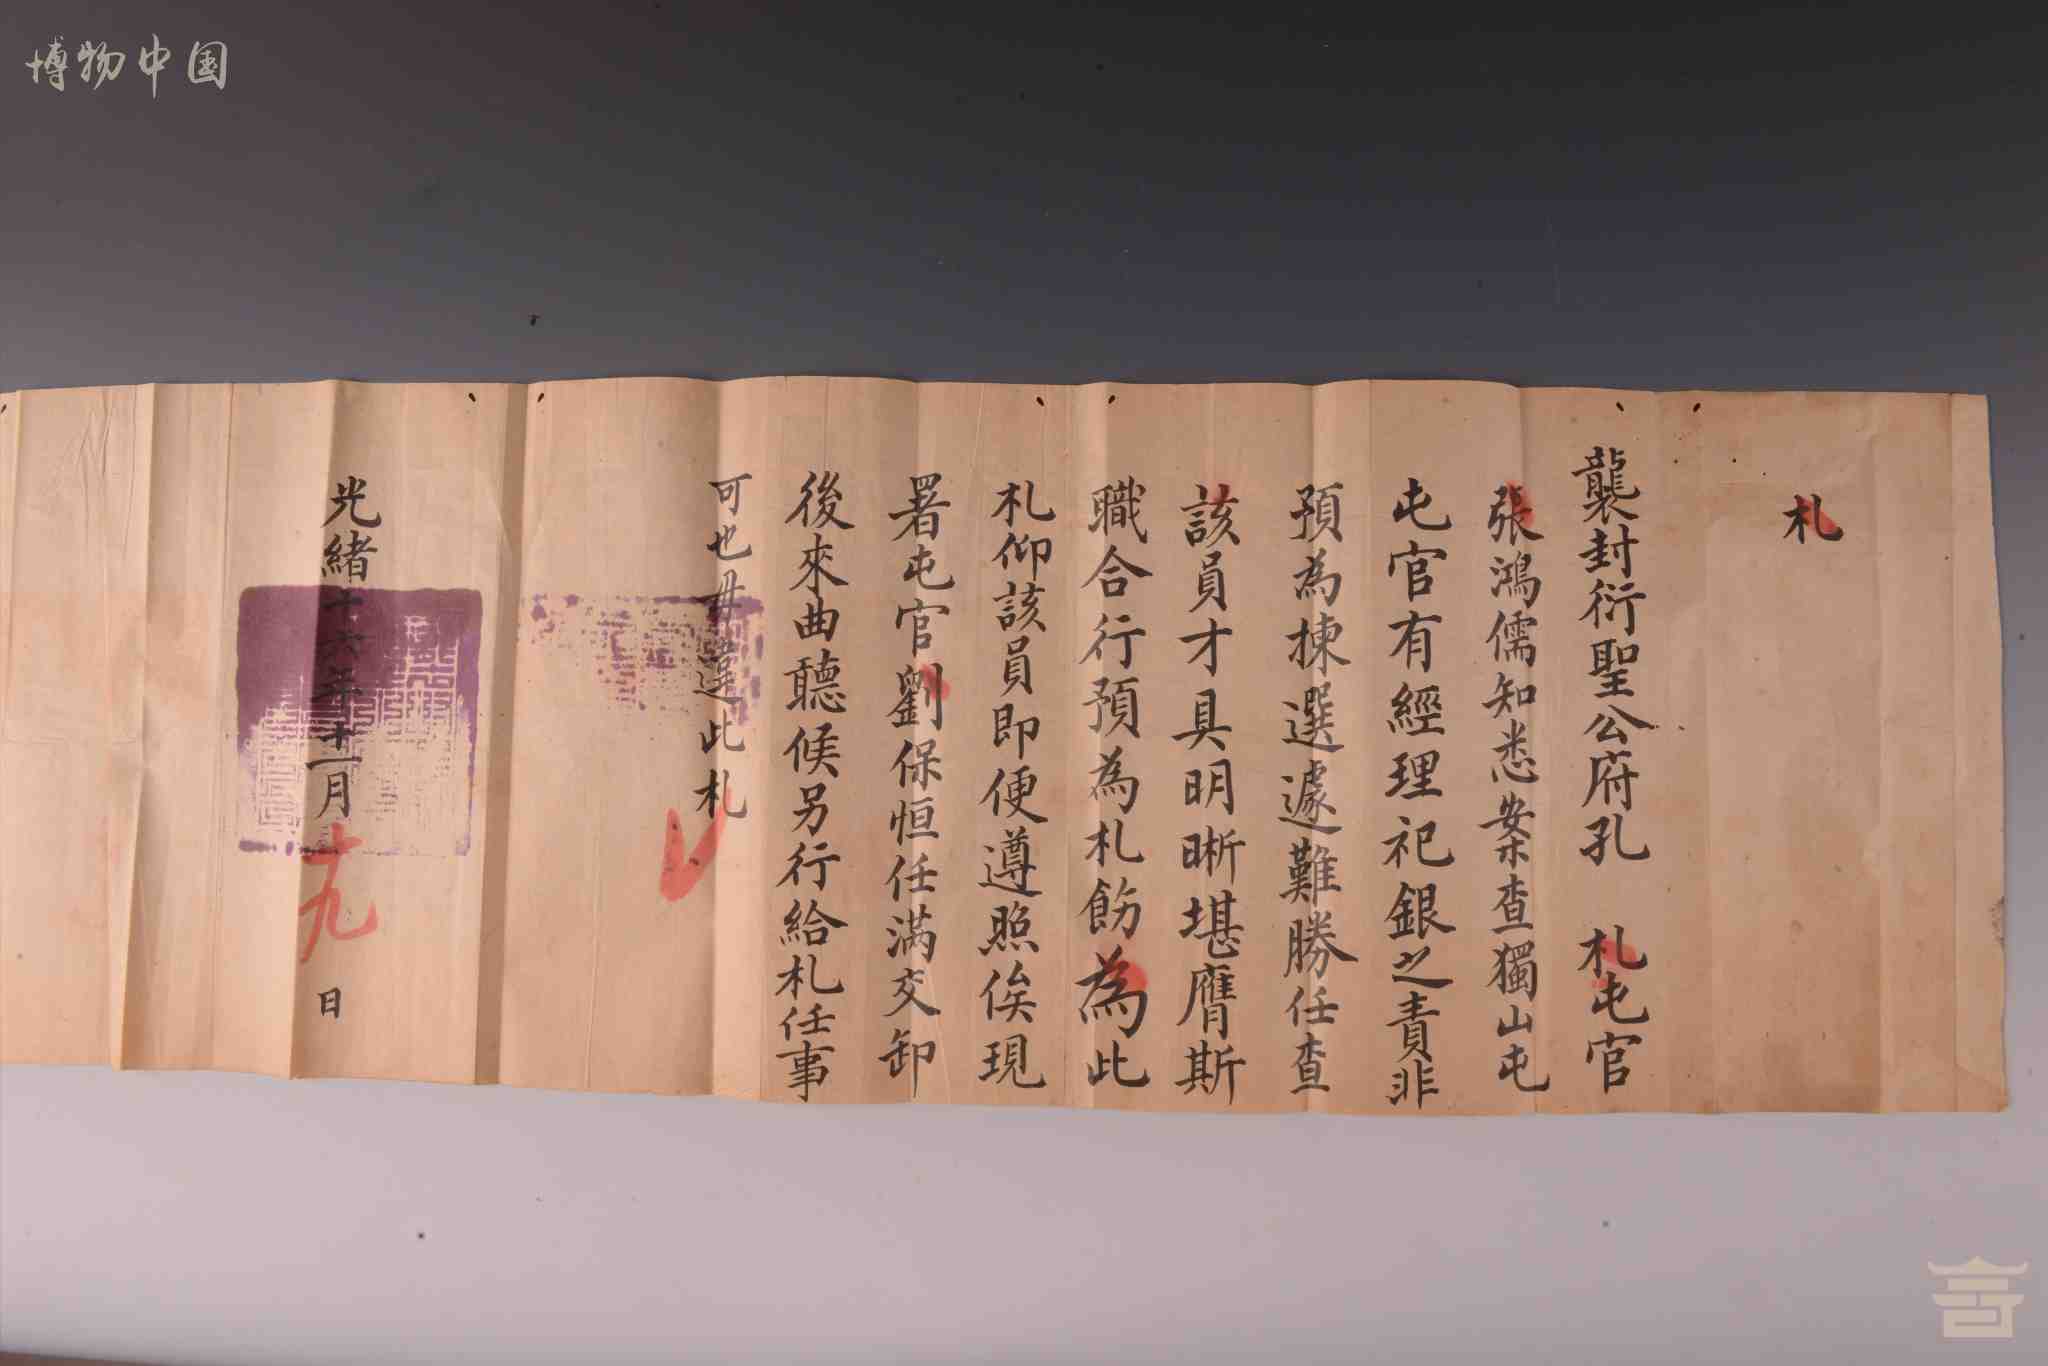 博物中国
札
襲封衍聖公府孔 札屯官
張鴻儒知悉案查獨山屯
屯官有經理祀銀之責非
預為揀選遽難勝任查
該員才具明晰堪膺斯
職合行預為札飭為此
札仰該員即便遵照俟現
署屯官劉保恒任滿交卸
後來曲聽候另行給札任事
可也毋違此札
光緒十六年十一月十九日